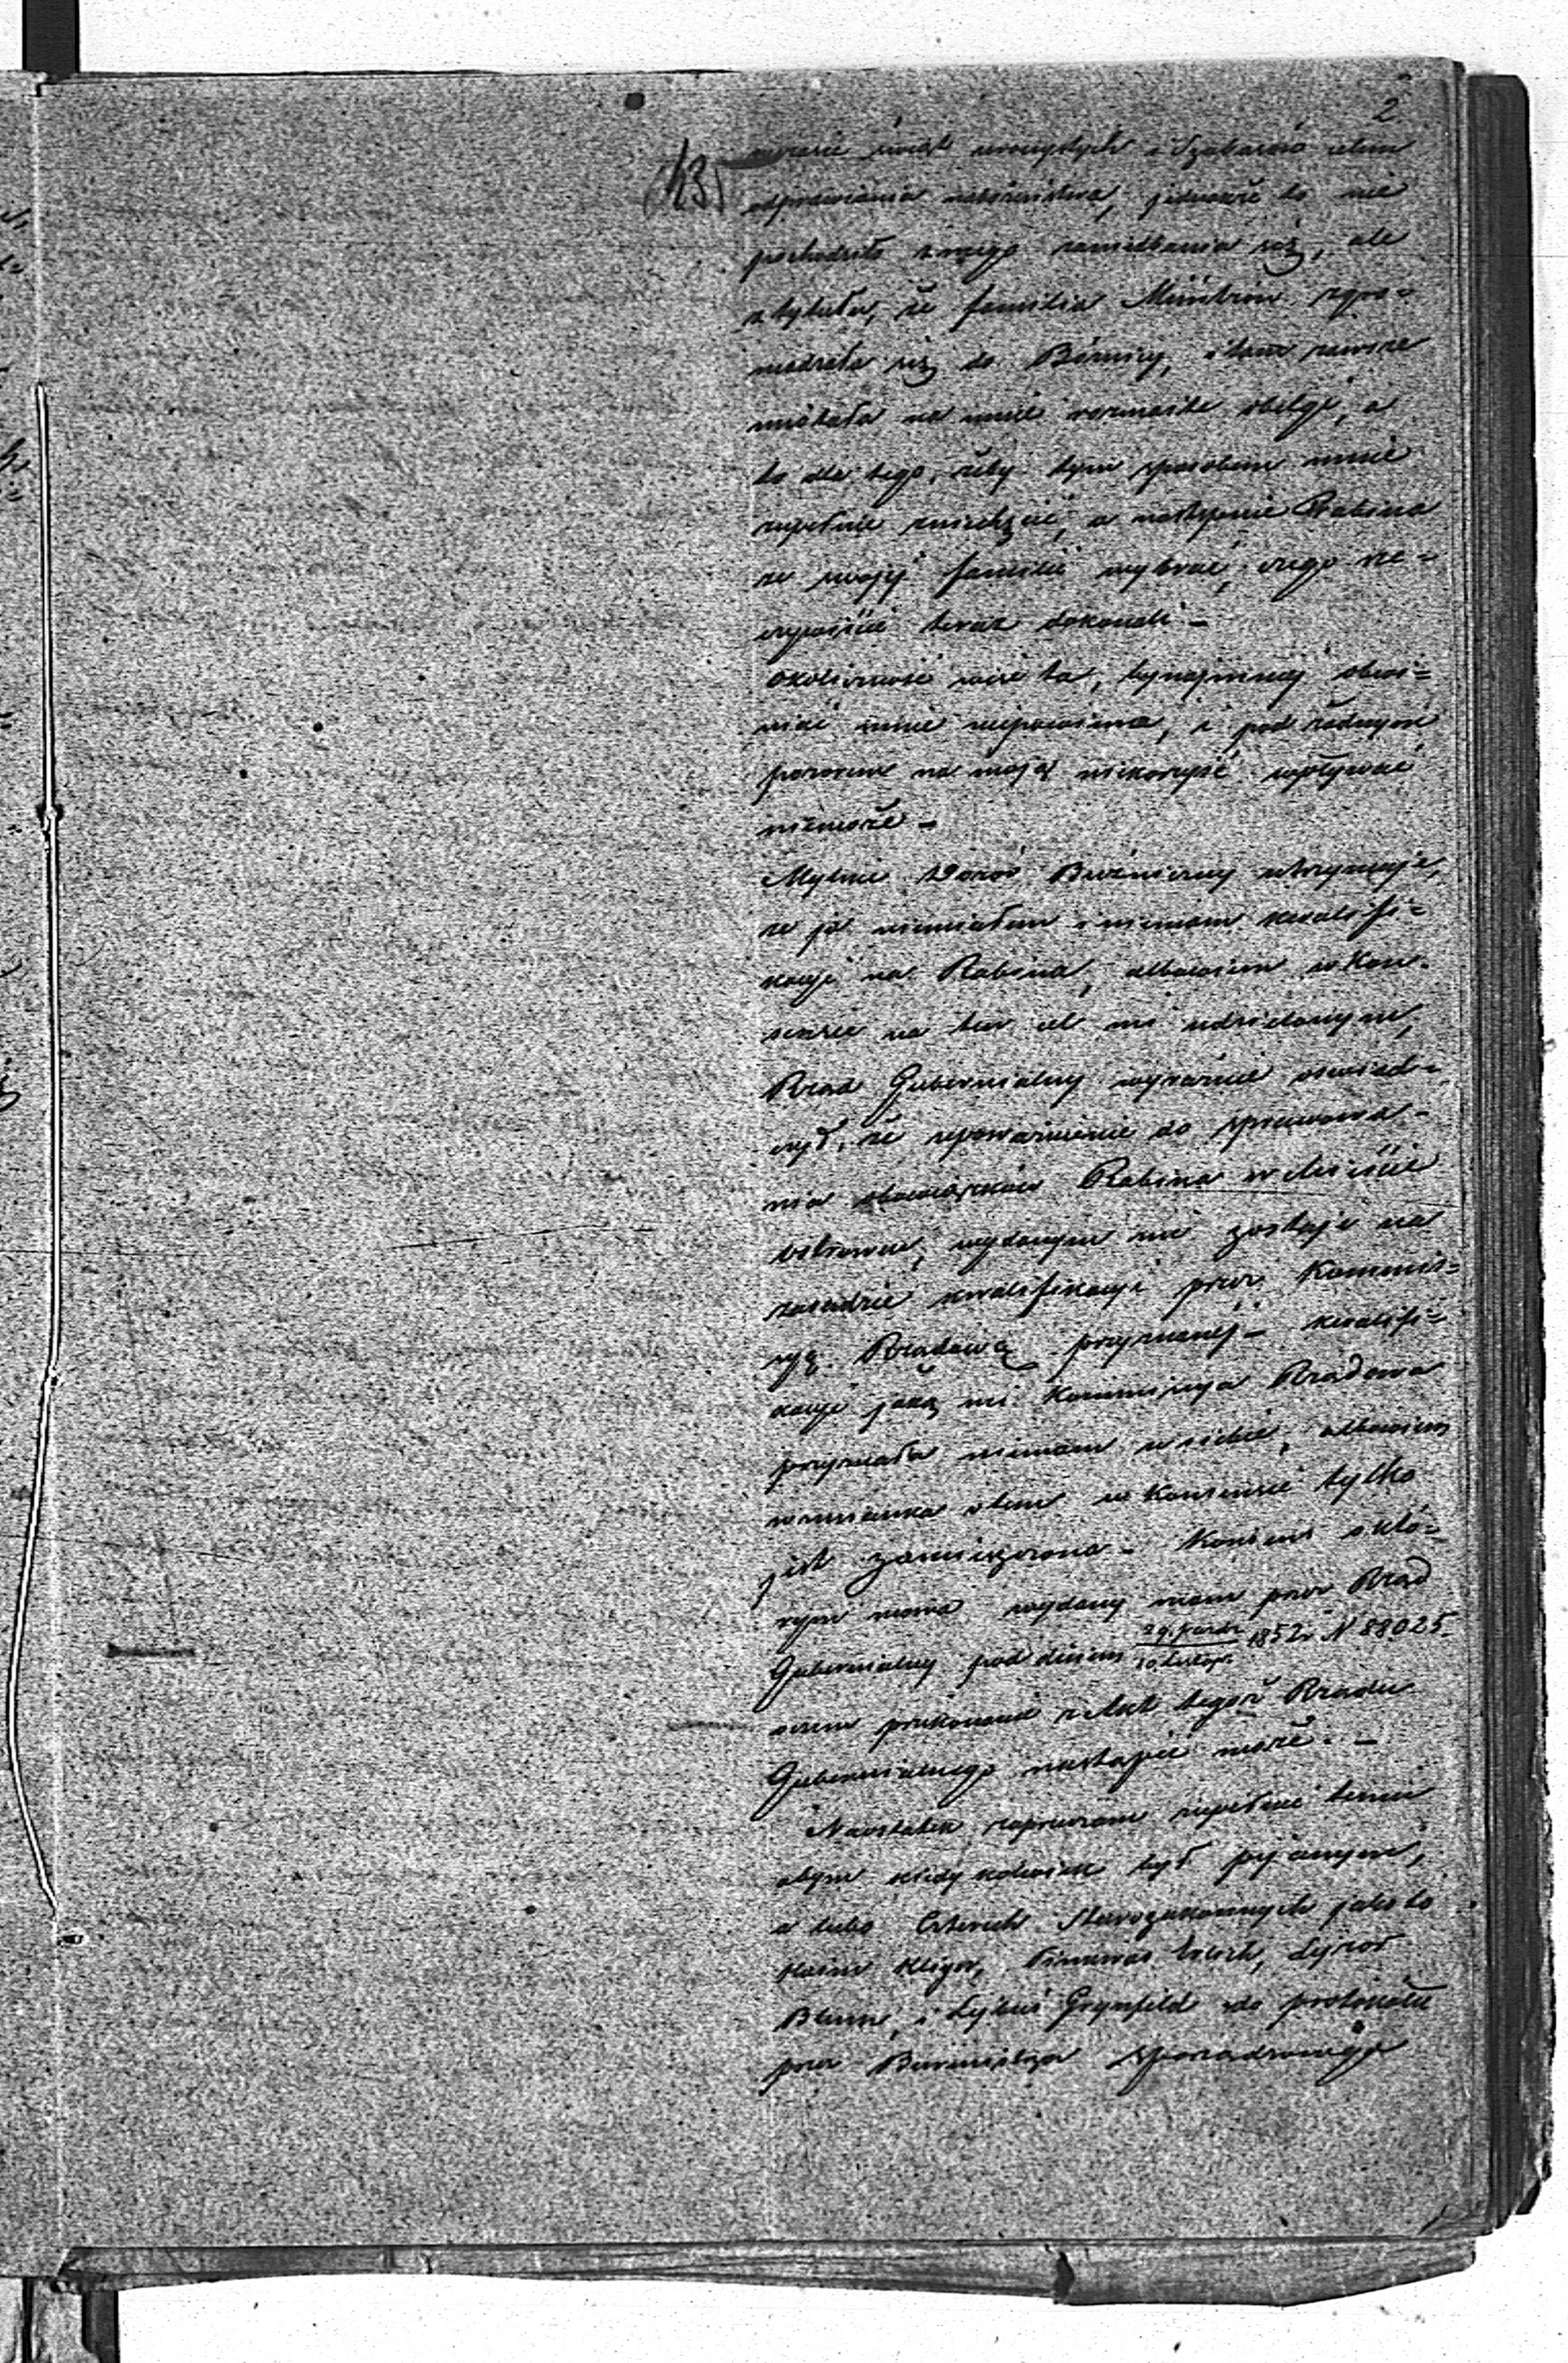 2
435
w czasie świąt uroczystych i Szabasów celem
odprawiania nabożeństwa, jednakże to nie
pochodziło z mego zaniedbania się, ale
z tytułu, że familia Muntrów zgro=
madzała się do Bóżnicy, i tam zawsze
miotała na mnie rozmaite obelgi, a
to dla tego, żeby tym sposobem mnie
zupełnie zniechęcić, a następnie Rabina
ze swojej familii wybrać, czego rze=
czywiście teraz dokonali –
Okoliczność więc ta, bynajmniej obwi=
niać mnie niepowinna, i pod żadnym
pozorem na moją niekorzyść wpływać
niemoże –
Mylnie Dozór Bużniczny utrzymuje,
że ja niemiałem i niemam kwalifi=
kacyi na Rabina, albowiem w Kon=
sensie na ten cel mi udzielonym,
Rząd Gubernialny wyraźnie oswiad=
czył, że upoważnienie do sprawowa=
nia obowiązków Rabina w Mieście
Ostrowcu, wydanym mi zostaje na
zasadzie kwalifikacyi przez Kommis=
syą Rządową przyznanej – kwalifi=
kacyi jaką mi Kommissya Rządowa
przyznała niemam u siebie, albowiem
wzmianka o tem w Konsensie tylko
jest zamieszczona – Konsens o któ=
rym mowa wydany mam przez Rząd
Gubernialny pod dniem 29. Paźdz./10 Listop. 1852 r N 88025.
o czem przekonanie z Akt tegoż Rządu
Gubernialnego nastąpić może. –
Naostatek zaprzeczam zupełnie temu
abym kiedykolwiek był pijanym,
a lubo Czterech Starozakonnych jako to
Haim Kliger, Pinkwas, Lejzor
Blum, i Lejbuś Grynfeld do protokółu
przez Burmistrza sporządzonego